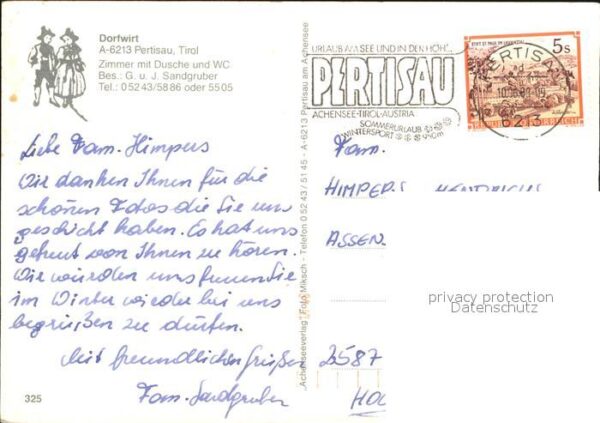 Dorfwirt
A-6213 Pertisau, Tirol
Zimmer mit Dusche und WC
Bes.: G. u. J. Sandgruber
Tel.: 0 52 43/58 86 oder 55 05
Liebe Fam. Himpers
Wir danken Ihnen für die
schönen Fotos die Sie uns
geschickt haben. Es hat uns
gefreut von Ihnen zu hören.
Wir würden uns freuen Sie
im Winter wieder bei uns
begrüßen zu dürfen.
Mit freundlichen Grüßen
Fam. Sandgruber
325
Achenseeverlag, Foto Miksch - Telefon 0 52 43 / 51 45 - A-6213 Pertisau am Achensee
URLAUB AM SEE UND IN DEN HÖH
PERTISAU
ACHENSEE-TIROL-AUSTRIA
SOMMERURLAUB
WINTERSPORT 940m
5 S
STIFT ST. PAUL IM LAVANTTAL
PERTISAU
6213
Fam.
HIMPERS
ASSEN
2587
HO
privacy protection
Datenschutz